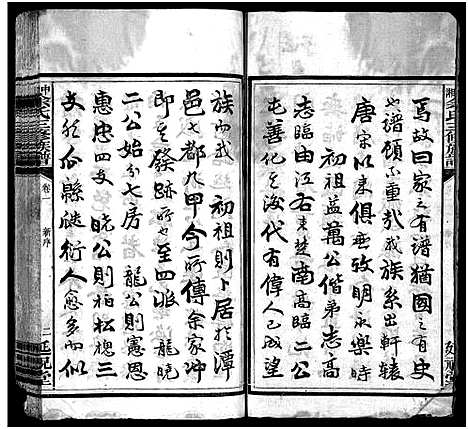 焉故曰家之有譜猶國之有史
也譜顧不重哉我族系出軒轅
唐宋以來俱垂致明永樂時
初祖益萬公偕弟志高
志臨由江右來楚南高臨二公
屯善化之海代有偉人已成望
族而我初祖則卜居於潭
邑七都九甲今所傳余家冲
即其發跡所也至四派龍曉
二公始分七房龍公則憲恩
惠忠四支曉公則柏松樬三
支於瓜縣繩衍人愈多派似
余氏三修族譜
卷一
新序
二